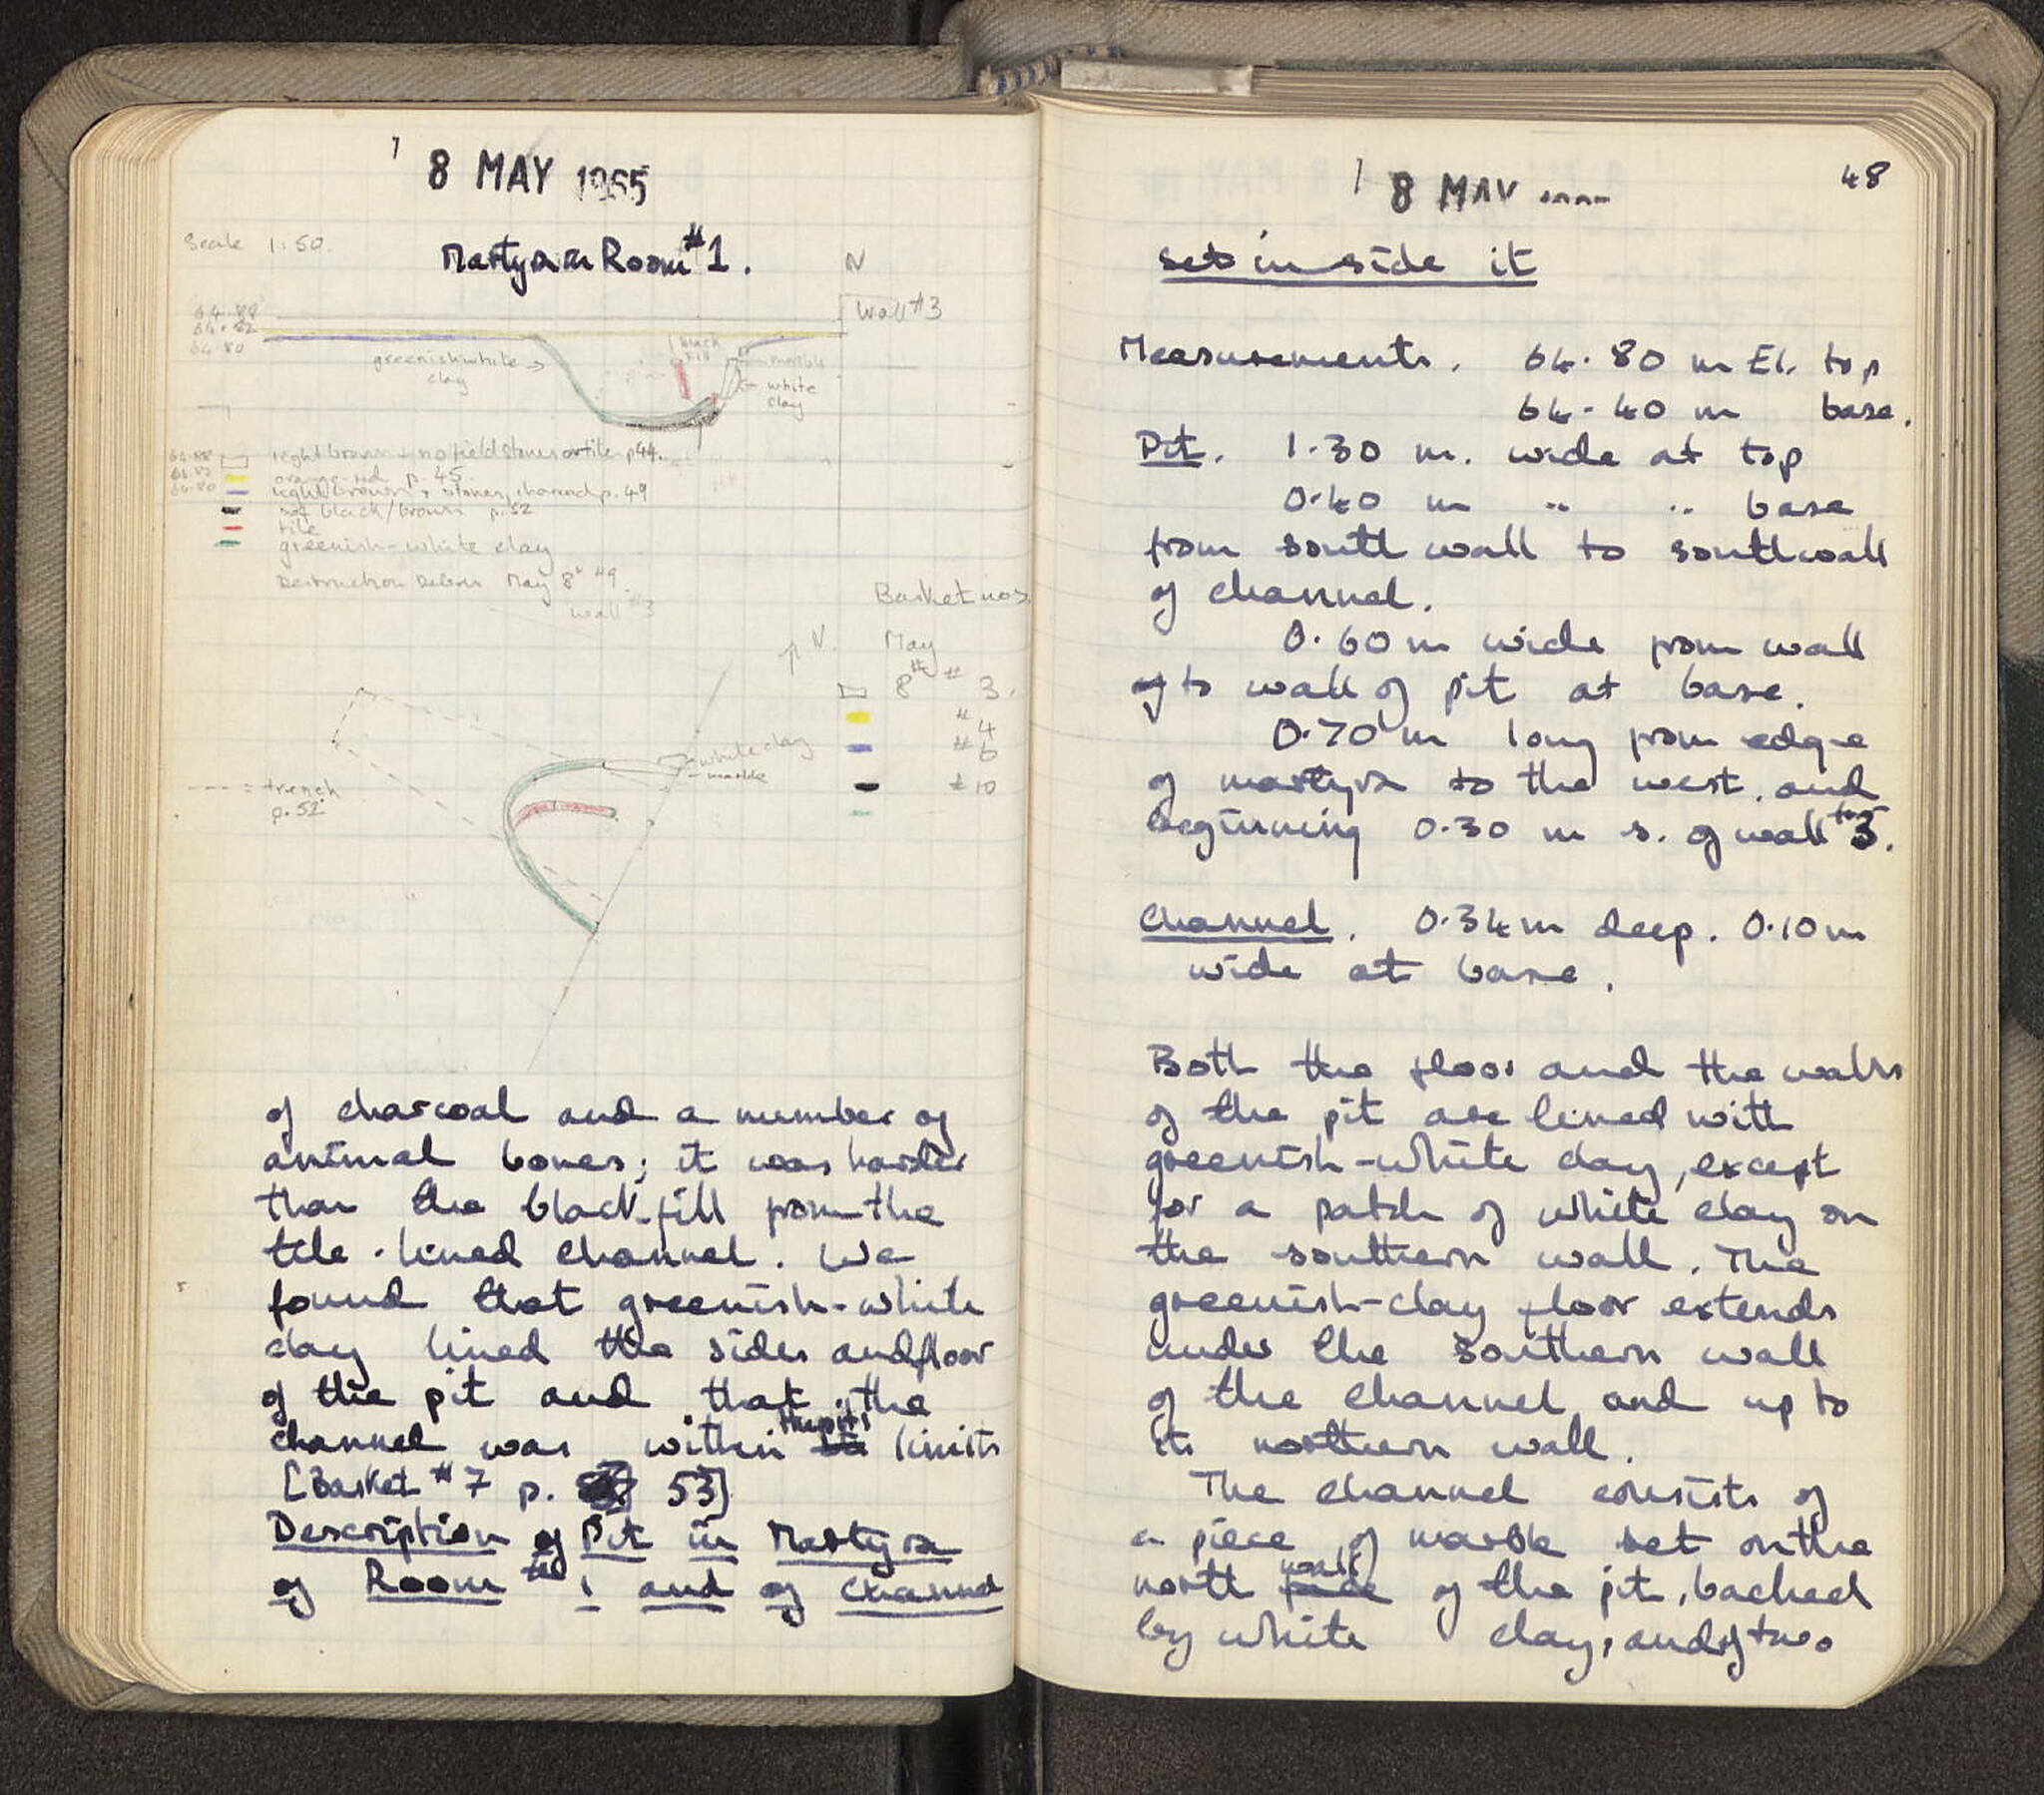 8 MAY 1965
Scale 1:50.
Martyra in Room #1.
N
64.88
64.82
64.80
Wall #3
greenish white
clay
black
fill
marble
white
clay
light brown + no field stones or tile p 44.
orange-red p. 45
light brown + stones, charcoal p. 49
soft black/brown p. 52
tile
greenish-white clay
Destruction Debris May 8th #9.
wall #3
Basket nos
N.
May
8th # 3.
# 4
# 6
# 10
white clay
marble
---- = trench
p. 52
of charcoal and a number of
animal bones; it was harder
than the black fill from the
tile-lined channel. We
found that greenish-white
clay lined the sides and floor
of the pit and that the
channel was within the pit's limits
[Basket #7 p. 53]
Description of Pit in Martyra
of Room #1 and of channel
8 MAY
48
set inside it
Measurements. 64.80 m El. top
64.40 m base.
Pit. 1.30 m. wide at top
0.40 m " " base
from south wall to southwall
of channel.
0.60 m wide from wall
to wall of pit at base.
0.70 m long from edge
of martyra to the west, and
beginning 0.30 m s. of wall #3.
Channel. 0.34 m deep. 0.10 m
wide at base.
Both the floor and the walls
of the pit are lined with
greenish-white clay, except
for a patch of white clay on
the southern wall. The
greenish-clay floor extends
under the southern wall
of the channel and up to
its northern wall.
The channel consists of
a piece of marble set on the
north wall of the pit, backed
by white clay, and of two